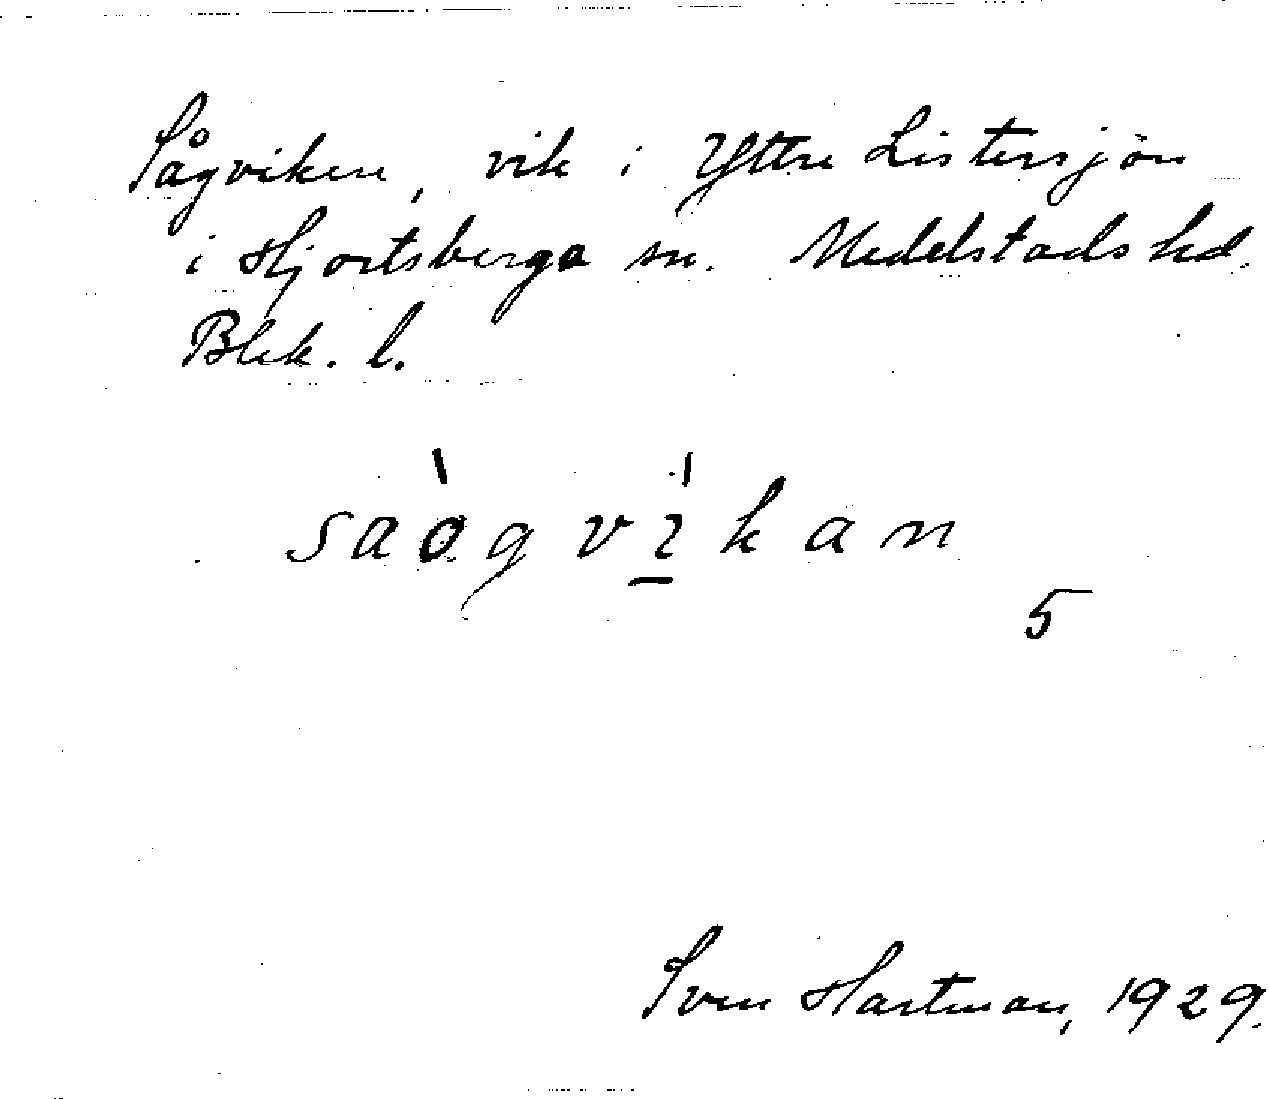 Sågviken, vik i Yttre Listersjön
i Hjortsberga sn. Medelstads hd.
Blek. l.
saògvìkan
5
Sven Hartman, 1929.